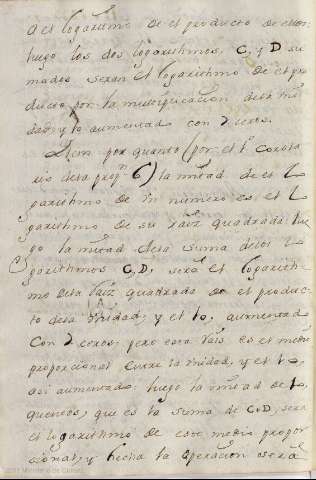 D el logaritmo de el producto de ellos
luego los dos logarithmos, C, y D su
mados seran el logarithmo de el pro
ducto por la multiplicacion dela uni
dad, y 10 aumentado con 7 ceros.
Item por quanto (por el 1º Corola
rio dela propⁿ 6) la mitad de el Lo
garithmo de un numero es el Lo
garithmo de su raiz quadrada lue
go la mitad dela suma delos Lo
garithmos C, D, será el logarith
mo dela raiz quadrada de el produc
to dela unidad, y el 10, aumentado
Con 7 ceros, pero esta raiz es el medio
proporcional entre la unidad, y el 10,
asi aumentado, luego la mitad de
que es la suma de C, D, será
el logarithmo de este medio propor
zional, y hecha la operacion será